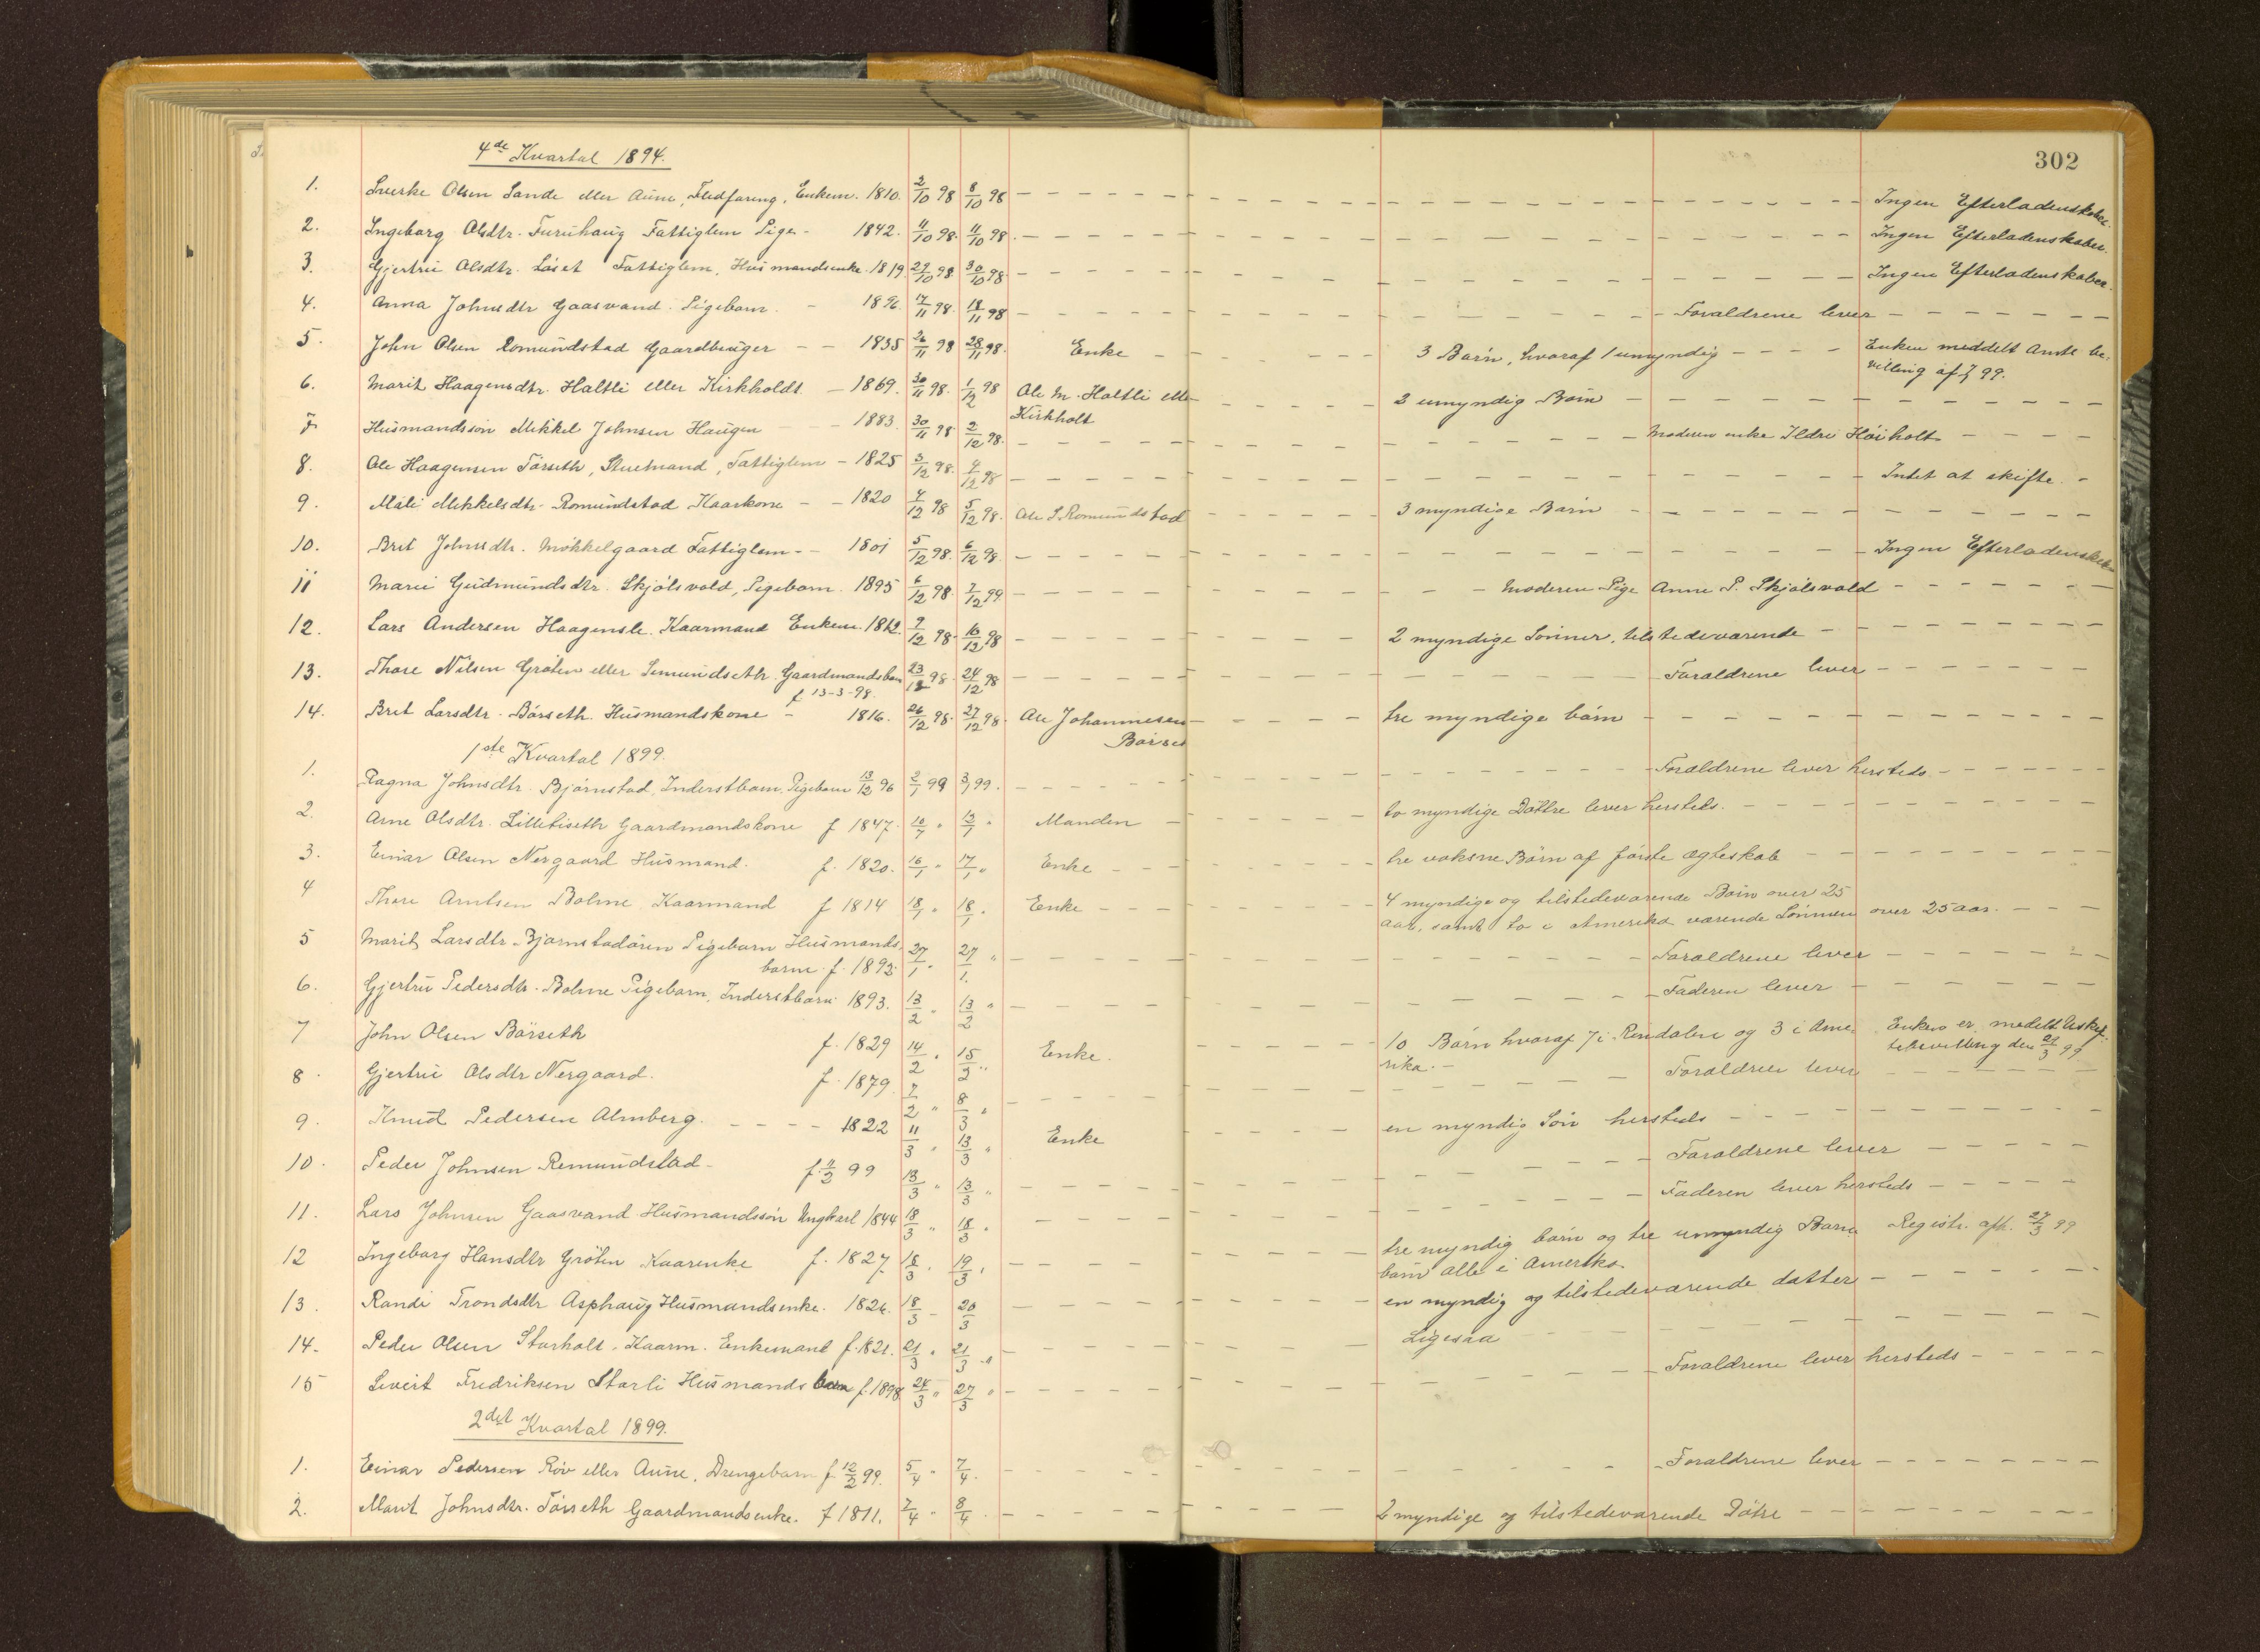 302
4de Kvartal 1894.
1. Sverke Olsen Sande eller Aune, Fledføring, Enkem. 1810. 2/10 98 8/10 98 Ingen Efterladenskaber.
2. Ingeborg Olsdtr. Furuhaug Fattiglem Pige - 1842. 11/10 98. 11/10 98. Ingen Efterladenskaber.
3. Gjertru Olsdtr. Løset Fattiglem, Husmandsenke. 1819. 29/10 98 30/10 98 Ingen Efterladenskaber.
4. Anna Johnsdtr Gaasvand. Pigebarn. - 1896. 17/11 98. 18/11 98 Forældrene lever
5. John Olsen Romundstad Gaardbruger - - 1835 26/11 98 28/11 98. Enke 3 Børn, hvoraf 1 umyndig Enken meddelt Amts be-
villing af 99.
6. Marit Haagensdtr. Haltli eller Kirkholdt. - 1869. 30/11 98. 1/12 98 Ole M. Holtli eller 2 umyndig Børn
Kirkholt
7. Husmandssøn Mikkel Johnsen Haugen - - 1883. 30/11 98 2/12 98. Moderen enke Ildri Høiholt
8. Ole Haagensen Tørseth, Stuetmand, Fattiglem - 1825 3/12 98. 4/12 98 Intet at skifte. -
9. Mali Mikkelsdtr. Romundstad Kaarkone - - 1820 4/12 98 5/12 98. Ole S. Romundstad 3 myndige Børn
10. Brit Johnsdtr. Mökkelgaard Fattiglem - - 1801 5/12 98. 6/12 98. Ingen Efterladenskab
11 Marie Gudmundsdtr. Skjølsvold, Pigebarn. 1895 6/12 98. 7/12 99 Moderen Pige Anne P. Skjølsvold
12. Lars Andersen Haagensle. Kaarmand Enkem. 1812. 9/12 98. 10/12 98 2 myndige Sønner, tilstedeværende
13. Thore Nilsen Grøten eller Semundseth. Gaardmandsbarn 23/12 98. 24/12 98 Forældrene lever
f 13-3-98.
14. Brit Larsdtr. Børseth. Husmandskone - 1816. 26/12 98. 27/12 98. Ole Johannesen tre myndige børn
Børset
1ste Kvartal 1899.
1. Ragna Johnsdtr. Bjørnstad, Inderstbarn, Pigebarn 13/12 96 2/1 99 3/1 99. Forældrene lever hersteds.
2. Arne Olsdtr. Lillebiseth Gaardmandskone f 1847. 10/1 " 13/1 " Manden to myndige Døttre lever hersteds.
3. Einar Olsen Nergaard Husmand. f. 1820. 16/1 " 17/1 " Enke tre voksne Børn af første Ægteskab
4 Thore Arntsen Bolme Kaarmand f 1814 18/1 " 18/1 " Enke 4 myndige og tilstedeværende Børn over 25
aar, samt to i Amerika værende Sønner over 25 aar.
5 Marit Larsdtr. Bjørnstadøien Pigebarn Husmands- 27/1 " 27/1 " Forældrene lever
barn f. 1893.
6. Gjertru Pedersdtr. Bolme Pigebarn, Inderstbarn 1893. 13/2 " 13/2 " Faderen lever
7 John Olsen Børseth f. 1829 14/2 " 15/2 " Enke. 10 Børn hvoraf 7 i Rindalen og 3 i Ame- Enken er meddelt Uskif-
rika. - tebevilling den 21/3 99
8. Gjertru Olsdtr Nergaard. f. 1879. 7/2 " 8/3 " Forældrene lever
9. Knud Pedersen Almberg. - - - - 1822 11/3 " 13/3 " Enke en myndig Søn hersteds
10. Peder Johnsen Romundstad - f. 11/2 99 13/3 " 13/3 " Forældrene lever
11. Lars Johnsen Gaasvand Husmandssøn Ungkarl 1844 18/3 " 18/3 " Faderen lever hersteds
12 Ingeborg Hansdtr Grøten Kaarenke f. 1827 18/3 " 19/3 " tre myndig børn og tre umyndig Barne Registr. afh. 27/3 99
børn alle i Amerika
13. Randi Trondsdtr Asphaug Husmandsenke. 1826. 18/3 - 20/3 en myndig og tilstedeværende datter
14. Peder Olsen Storholt, Kaarm. Enkemand f. 1821. 21/3 " 21/3 " Ligesaa
15 Sivert Fredriksen Storli Husmandsbarn f. 1898 24/3 " 27/3 " Forældrene lever hersteds
2det Kvartal 1899.
1. Einar Pedersen Röv eller Aune, Drengebarn f 12/2 99. 5/4 " 7/4. Forældrene lever
2. Marit Johnsdtr. Tørseth Gaardmandsenke. f 1811. 7/4 " 8/4. 2 myndige og tilstedeværende Døtre